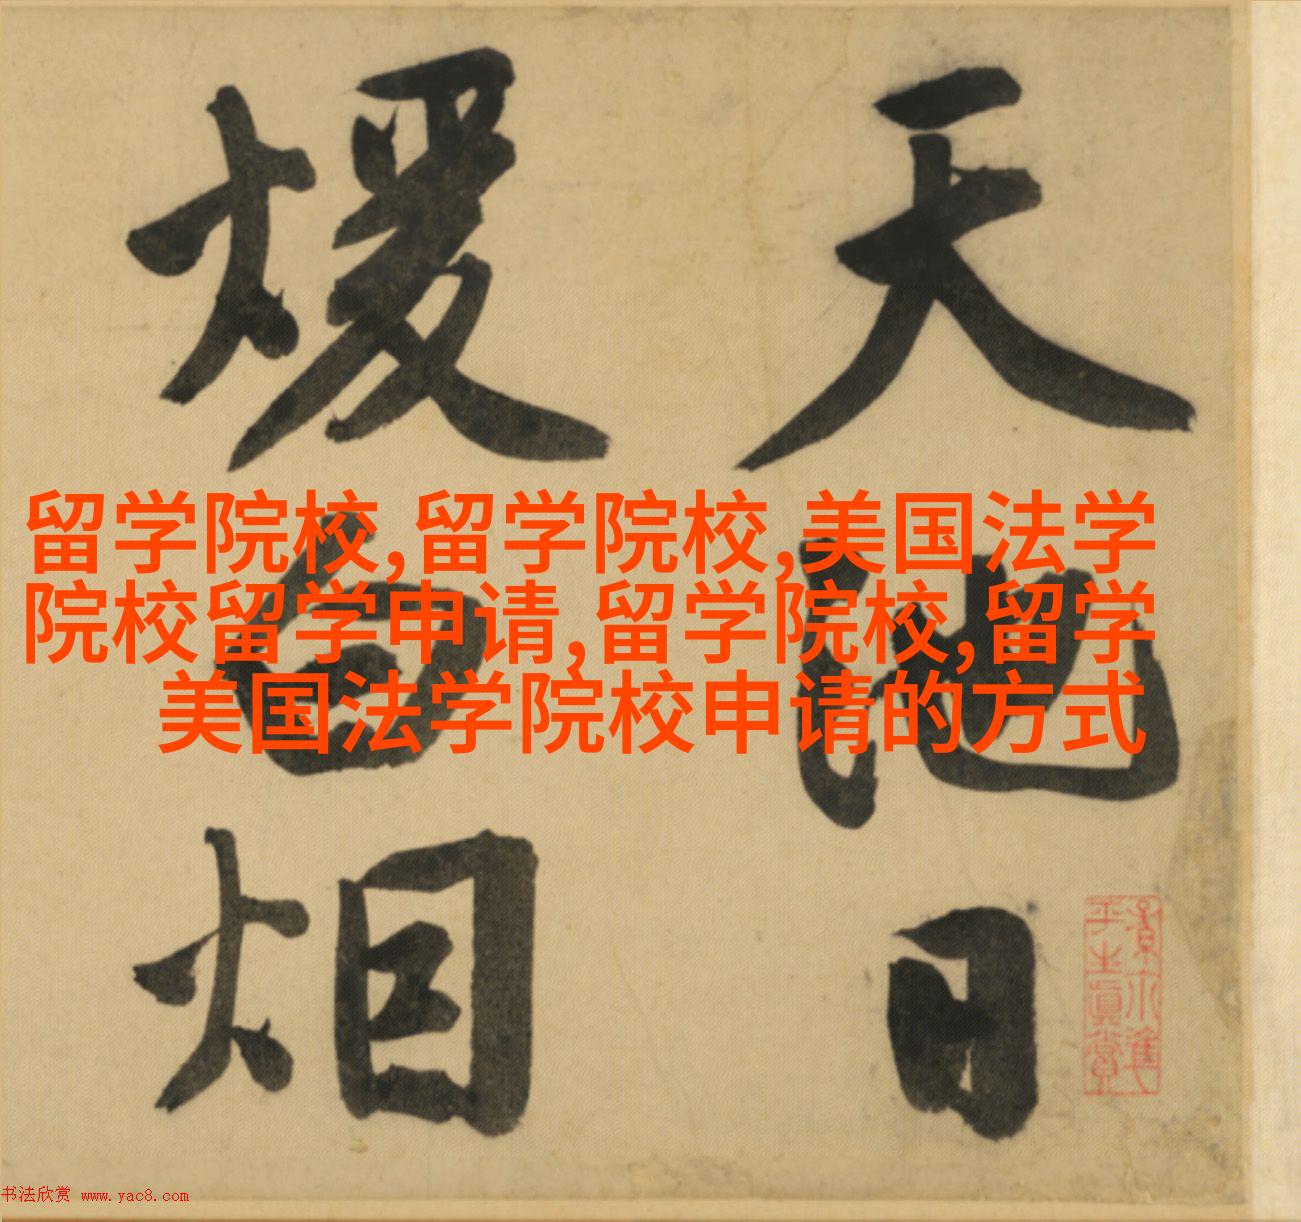 天池日
煖白烟
留学院校,留学院校,美国法学
院校留学申请,留学院校,留学
美国法学院校申请的方式
平生真赏
书法欣赏 www.yac8.com